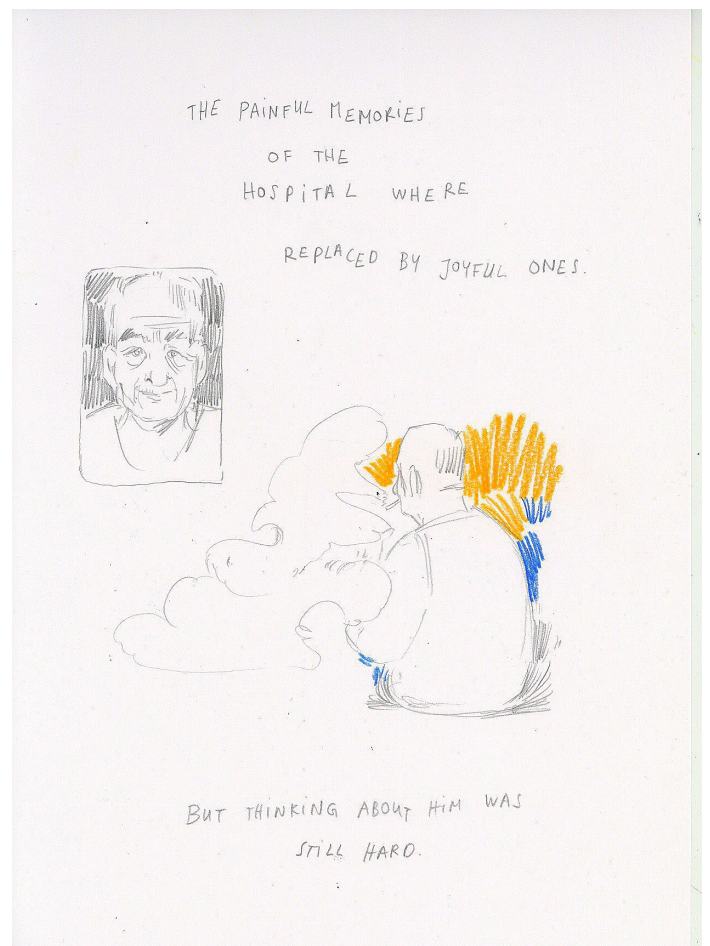 THE PAINFUL MEMORIES
OF THE
HOSPITAL WHERE
REPLACED BY JOYFUL ONES.
BUT THINKING ABOUT HIM WAS
STILL HARD.